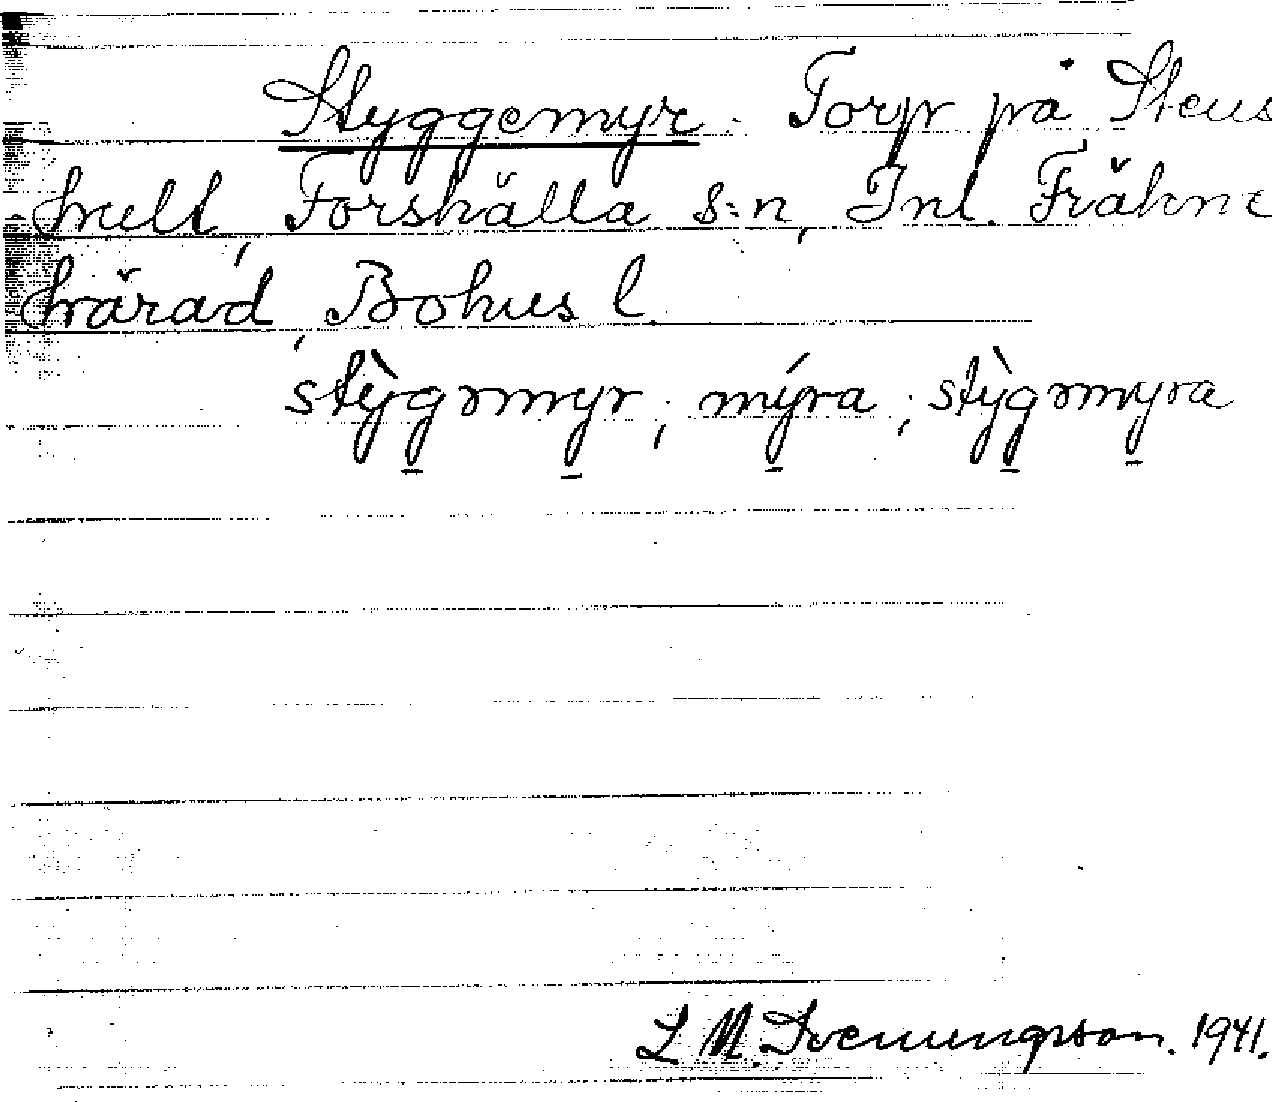 Styggemyr. Torp på Stens
hult, Forshälla s:n, Inl. Fräkne
härad, Bohus l.
stỳgəmyr, mýra, stỳgəmyra
L M. Svenungsson. 1941.